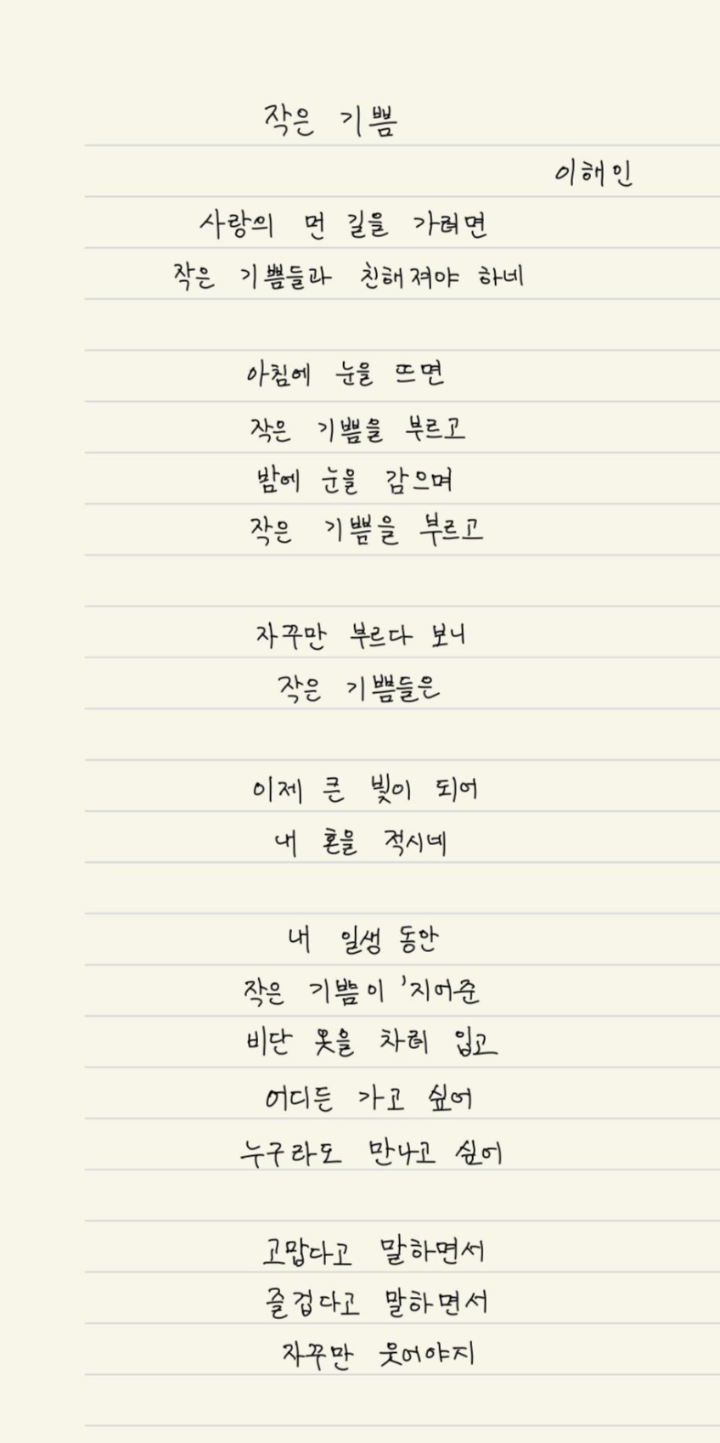 작은 기쁨
이해인
사랑의 먼 길을 가려면
작은 기쁨들과 친해져야 하네
아침에 눈을 뜨면
작은 기쁨을 부르고
밤에 눈을 감으며
작은 기쁨을 부르고
자꾸만 부르다 보니
작은 기쁨들은
이제 큰 빛이 되어
내 혼을 적시네
내 일생 동안
작은 기쁨이 '지어준
비단 옷을 차려 입고
어디든 가고 싶어
누구라도 만나고 싶어
고맙다고 말하면서
즐겁다고 말하면서
자꾸만 웃어야지